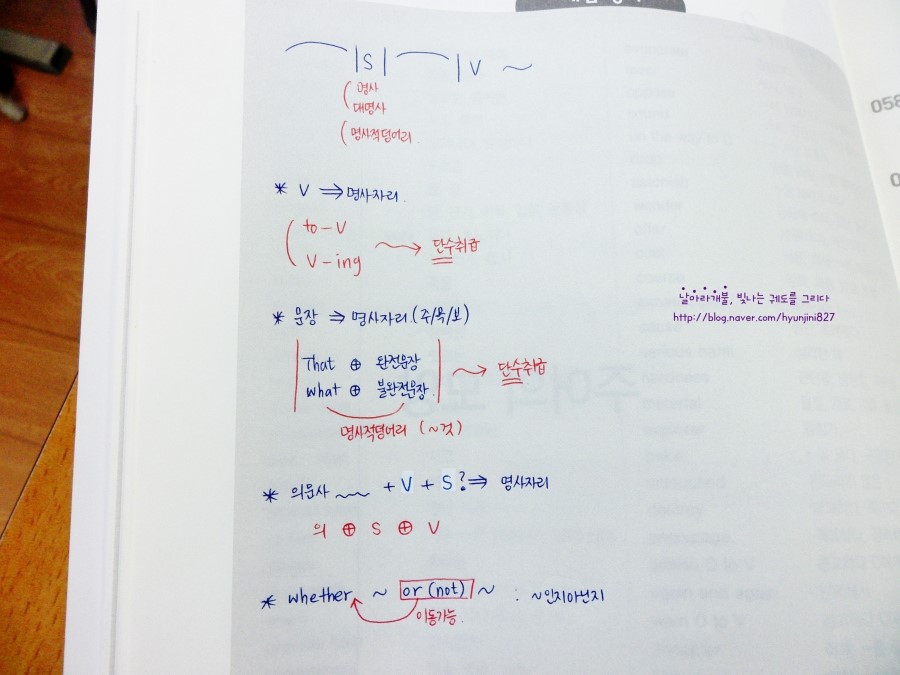 |S| |V ~
( 명사
대명사
( 명사적덩어리.
* V ⇒ 명사자리.
( to-V
V-ing → 단수취급
* 문장 ⇒ 명사자리.(주/목/보)
That ⊕ 완전문장
what ⊕ 불완전문장. → 단수취급
명사적덩어리 (~것)
* 의문사 ~~ + V + S? ⇒ 명사자리
의 ⊕ S ⊕ V
* whether ~ or (not) ~ : ~인지아닌지
이동가능.
날아라개불, 빛나는 궤도를 그리다
http://blog.naver.com/hyunjini827
058
0